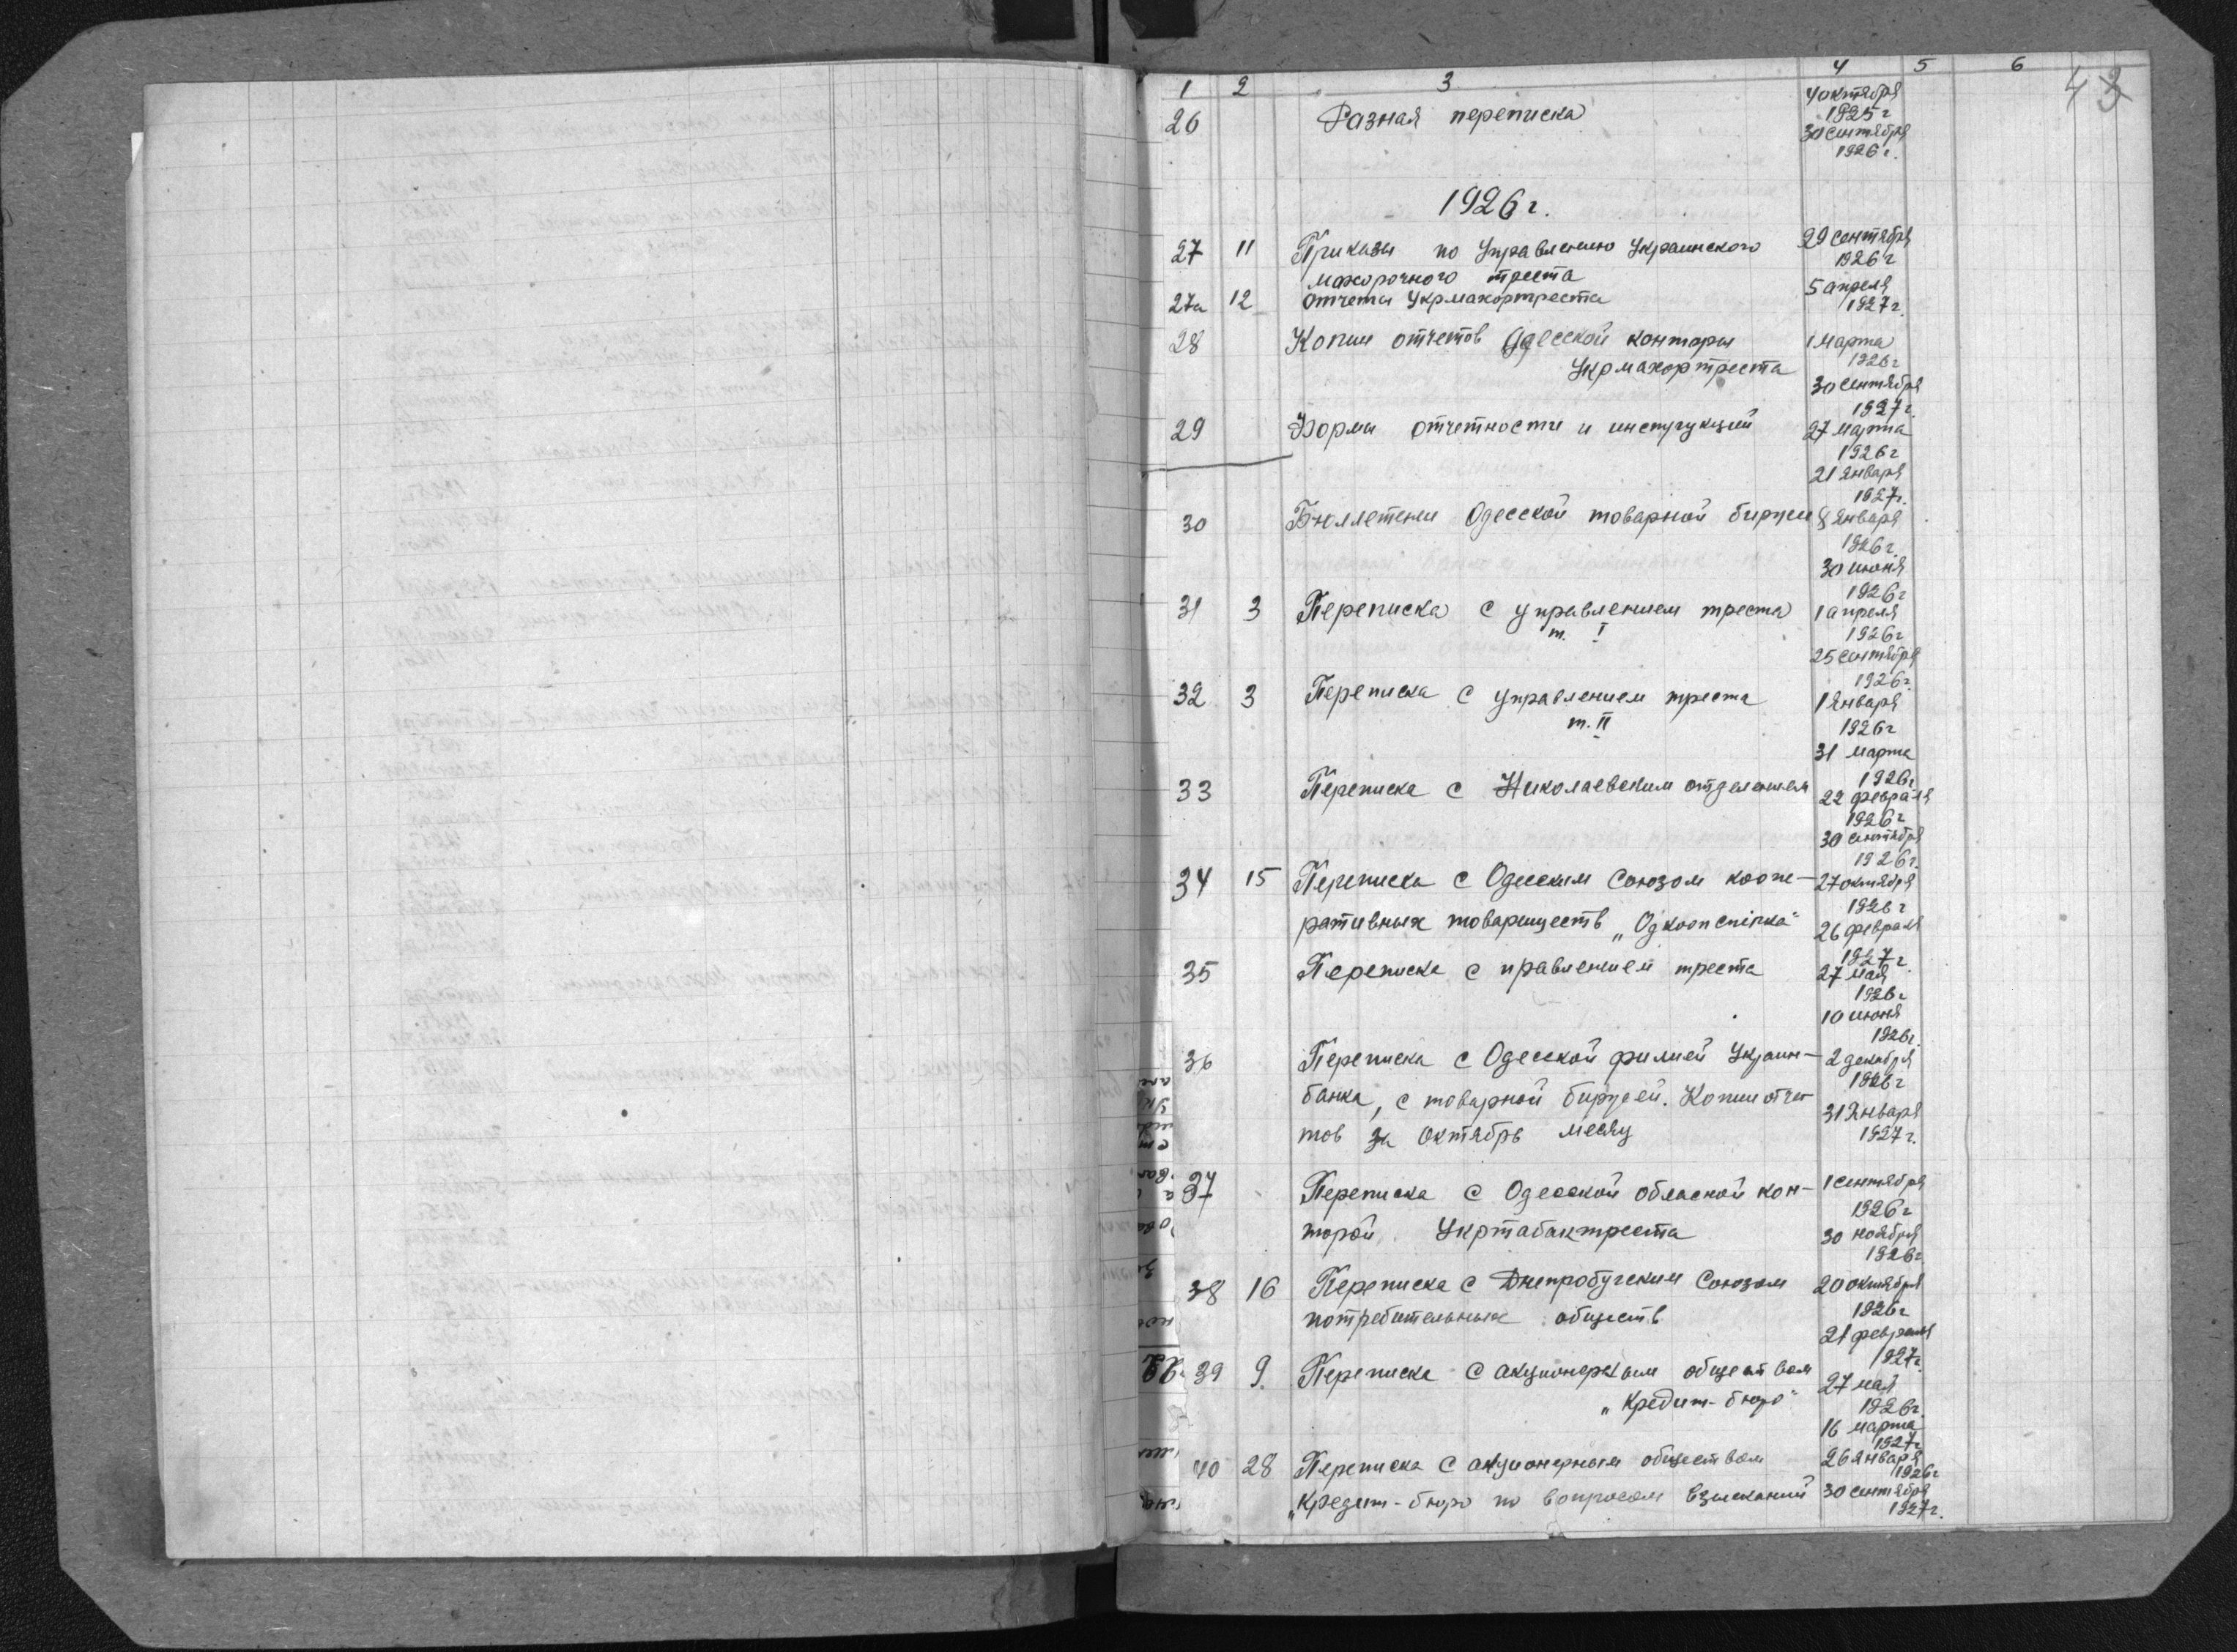 1 2 3 4 5 6
4
26 Разная переписка 4 октября
1925 г
30 сентября
1926 г.
1926 г.
27 11 Приказы по Управлению Украинского 29 сентября
махорочного треста 1926 г
27а 12 Отчеты Укрмахортреста 5 апреля
1927 г.
28 Копии отчетов Одесской конторы 1 марта
Укрмахортреста 1926 г
30 сентября
1927 г.
29 Формы отчетности и инструкций 27 марта
1926 г
21 января
1927 г.
30 Бюллетени Одесской товарной биржи 8 января
1926 г.
30 июня
1926 г
31 3 Переписка с управлением треста 1 апреля
т. I 1926 г
25 сентября
1926 г.
32 3 Переписка с управлением треста 1 января
т. II 1926 г
31 марта
1926 г
33 Переписка с Николаевским отделением 22 февраля
1926 г
30 сентября
1926 г.
34 15 Переписка с Одесским Союзом коопе- 27 октября
1926 г
ративных товариществ „Одкоопспілка" 26 февраля
1927 г.
35 Переписка с правлением треста 27 мая
1926 г
10 июня
1926 г.
36 Переписка с Одесской филией Украин- 2 декабря
1926 г
банка, с товарной биржей. Копии отче- 31 января
тов за октябрь месяц 1927 г.
37 Переписка с Одесской обласной кон- 1 сентября
1926 г
торой Укртабактреста 30 ноября
1926 г.
38 16 Переписка с Днепробугским Союзом 20 октября
потребительных обществ 1926 г
21 февраля
1927 г.
39 9. Переписка с акционерным обществом 27 мая
„Кредит-бюро" 1926 г.
16 марта
1927 г
40 28 Переписка с акционерным обществом 26 января
1926 г
„Кредит-бюро по вопросам взысканий 30 сентября
1927 г.